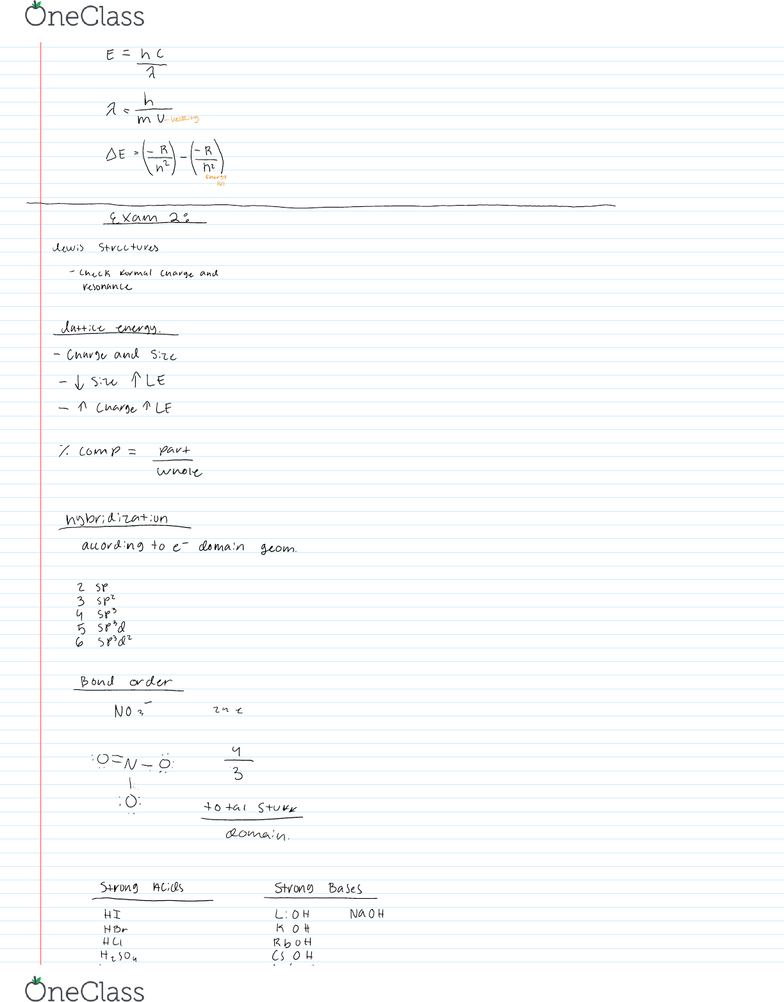 OneClass
E = hc/λ
λ = h/mv - velocity
ΔE = (-R/n²) - (-R/n²)
energy
Exam 2:
Lewis Structures
- Check formal charge and
resonance
Lattice energy.
- Charge and Size
- ↓ Size ↑ LE
- ↑ Charge ↑ LE
% comp = part
whole
hybridization
according to e⁻ domain geom.
2 sp
3 sp²
4 sp³
5 sp³d
6 sp³d²
Bond order
NO₃⁻ 24 e
:O=N-O:
4
3
:O:
total stuff
domain.
Strong Acids Strong Bases
HI LiOH NaOH
HBr KOH
HCl RbOH
H₂SO₄ CsOH
OneClass